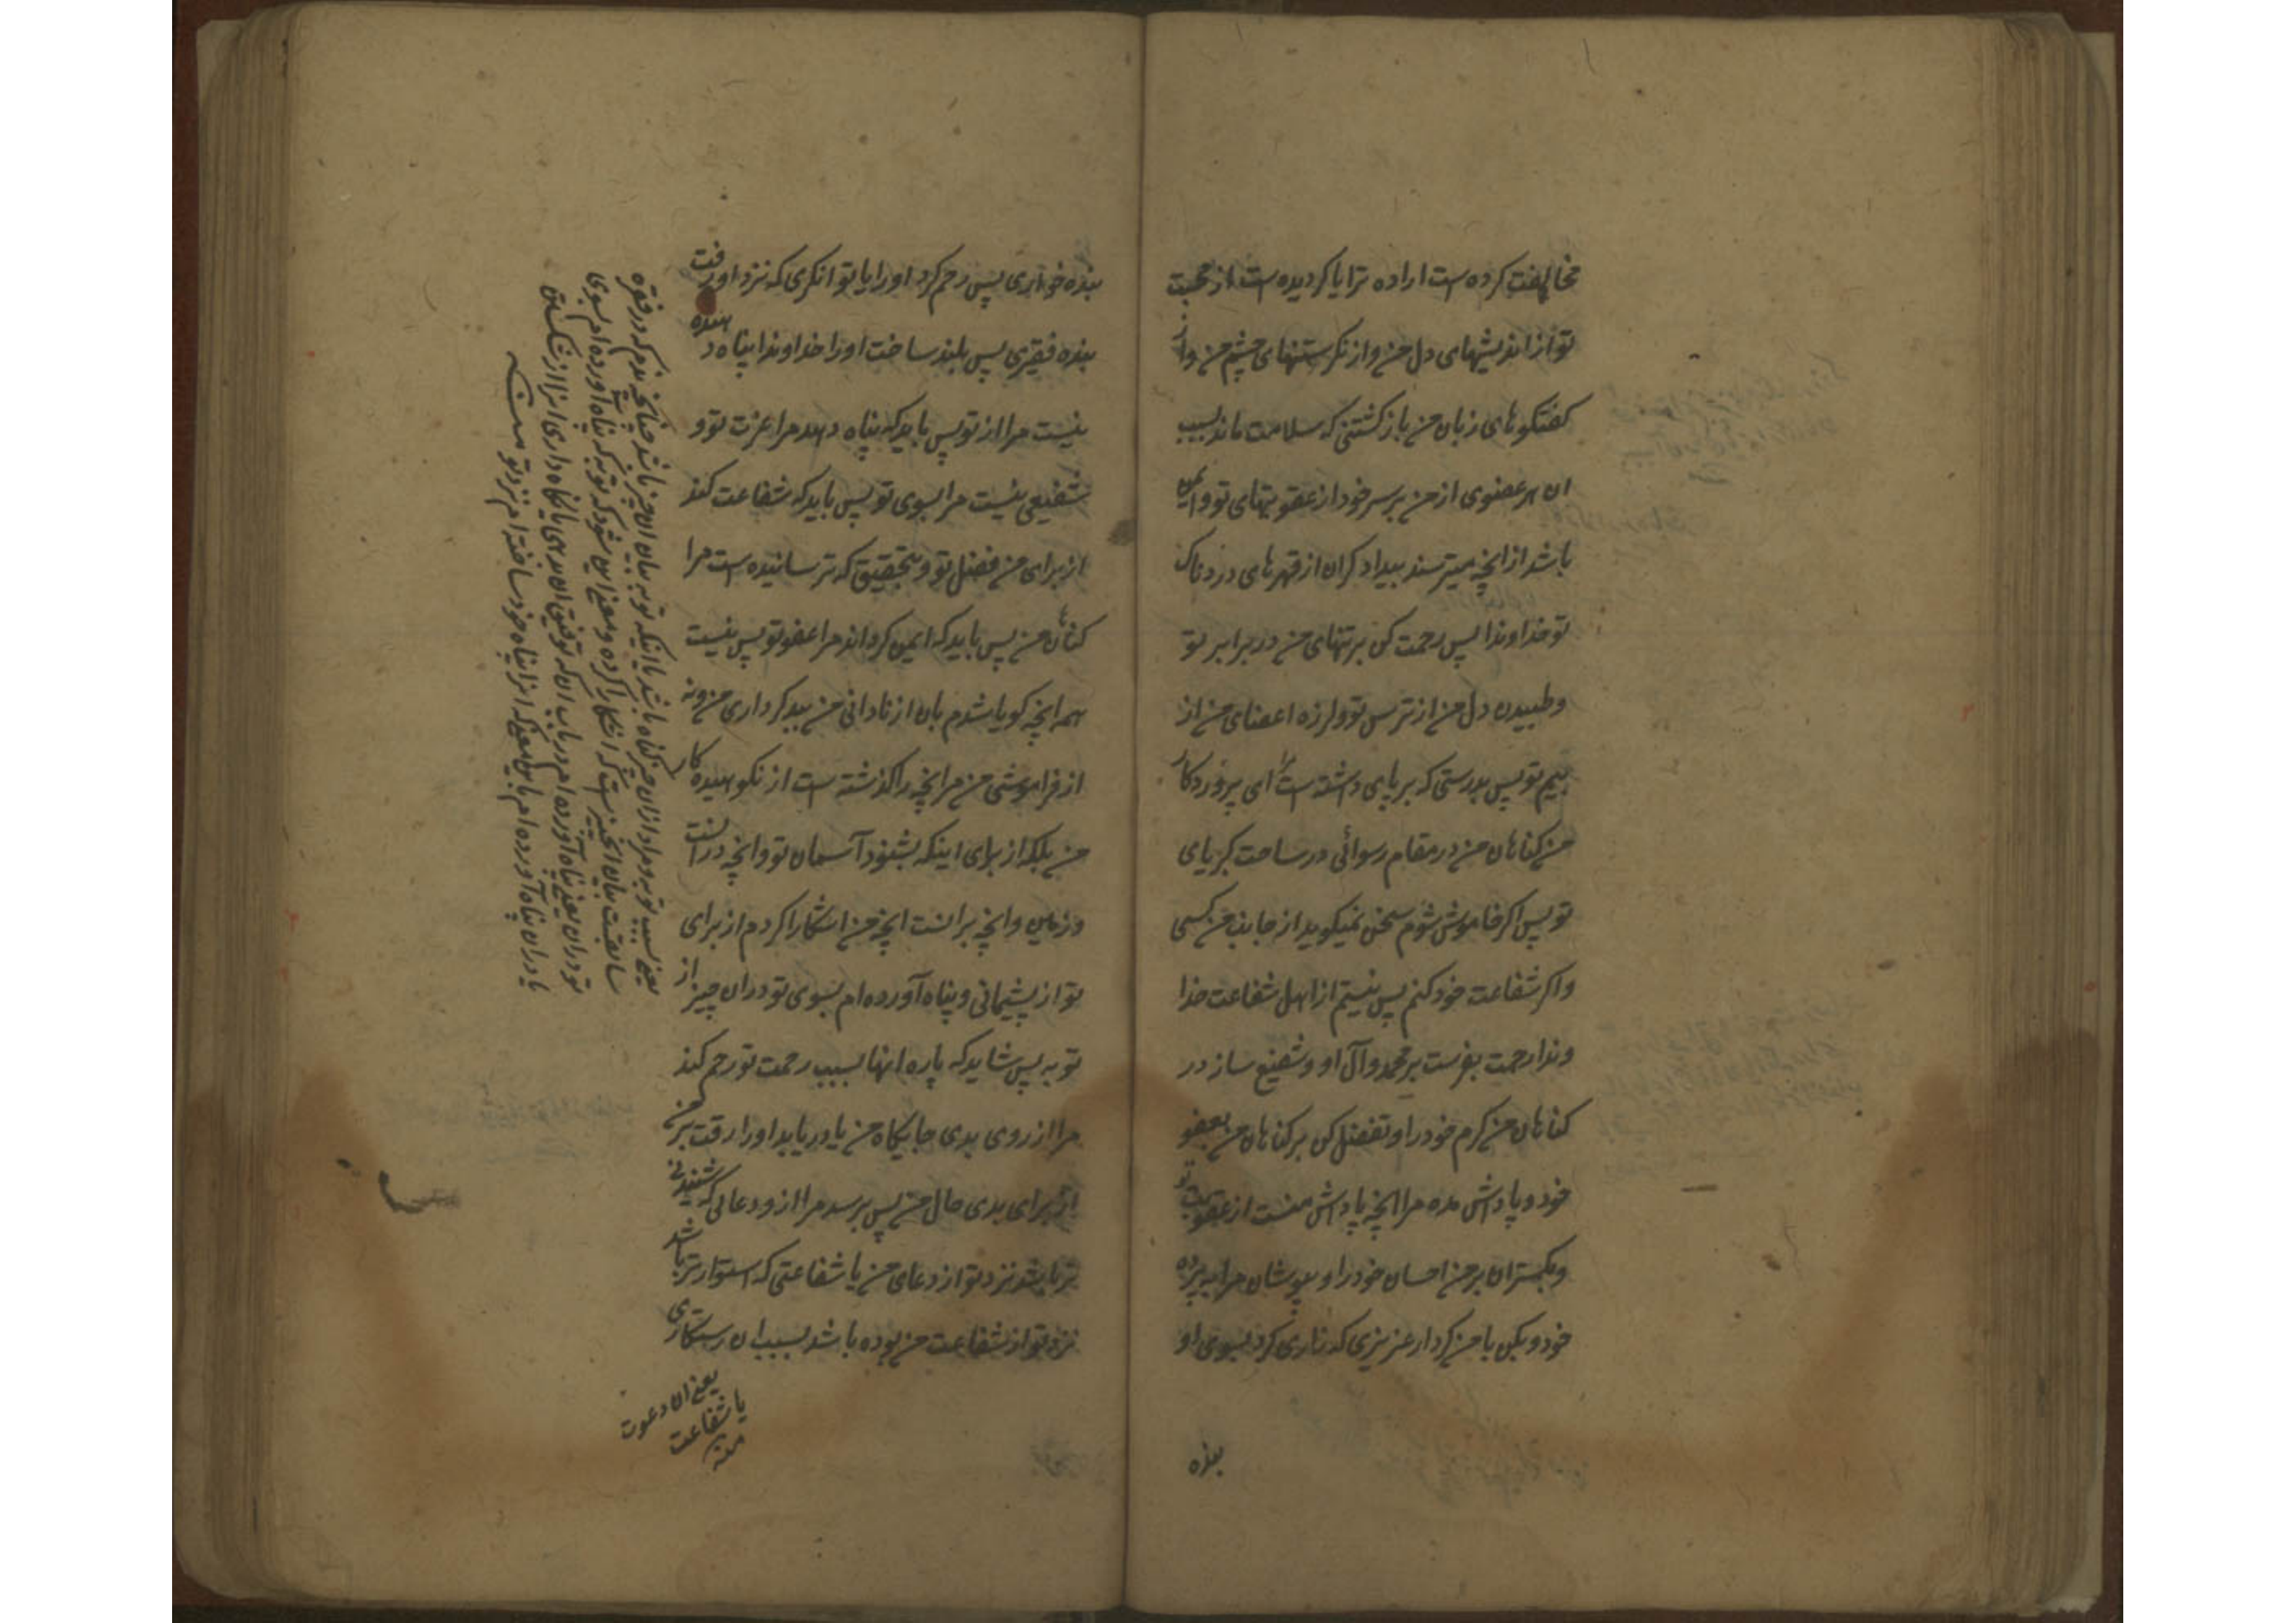 مخالفت کرده است اراده ترا یا کردیده است از محبت
تو از اندیشهای دل من و از نکرستنهای چشم من و از
کفتکوهای زبان من باز کشتنی که سلامت ماند بسبب
ان هر عضوی از من بر سر خود از عقوبتهای تو و ایمن
باشد از انچه میترسند بیدادکران از قهرهای دردناک
تو خداوندا پس رحمت کن بر تنهای من در برابر تو
و طپیدن دل من از ترس تو و لرزه اعضای من از
بیم تو پس بدرستی که بر پای داشته است ای پروردکار
من کناهان من در مقام رسوائی در ساحت کبریای
تو پس اکر خاموش شوم سخن نمیکوید از جانب من کسی
و اکر شفاعت خود کنم پس نیستم از اهل شفاعت خدا
وندا رحمت بفرست بر محمد و آل او و شفیع ساز در
کناهان من کرم خود را و تفضل کن بر کناهان من بعفو
خود و پاداش مده مرا انچه پاداش منست از عقوبت تو
و بکستران بر من احسان خود را و بپوشان مرا به پرده
خود و بکن با من کردار عزیزی که زاری کرد بسوی او
بنده
بنده خواری پس رحم کرد او را یا توانکری که نزد او رفت
بنده فقیری پس بلند ساخت او را خداوندا پناه دهنده
نیست مرا از تو پس باید که پناه دهد مرا عزت تو و
شفیعی نیست مرا بسوی تو پس باید که شفاعت کند
از برای من فضل تو و بتحقیق که ترسانیده است مرا
کناهان من پس باید که ایمن کرداند مرا عفو تو پس نیست
همه انچه کویا شدم بان از نادانی من ببد کرداری من و نه
از فراموشی من مر انچه را کذشته است از نکوهیده کار
من بلکه از برای اینکه بشنود آسمان تو و انچه در انست
و زمین و انچه بر انست انچه من اشکارا کردم از برای
تو از پشیمانی و پناه آورده ام بسوی تو در ان چیز از
توبه پس شاید که پاره انها بسبب رحمت تو رحم کند
مرا از روی بدی جایکاه من یا دریابد او را رقت بر من
از برای بدی حال من پس برسد مرا از و دعائی که شنیدنی
تر باشد نزد تو از دعای من یا شفاعتی که استوارتر باشد
نزد تو از شفاعت من بوده باشد بسبب ان رستکاری
یعنی ان دعوت
یا شفاعت
منه